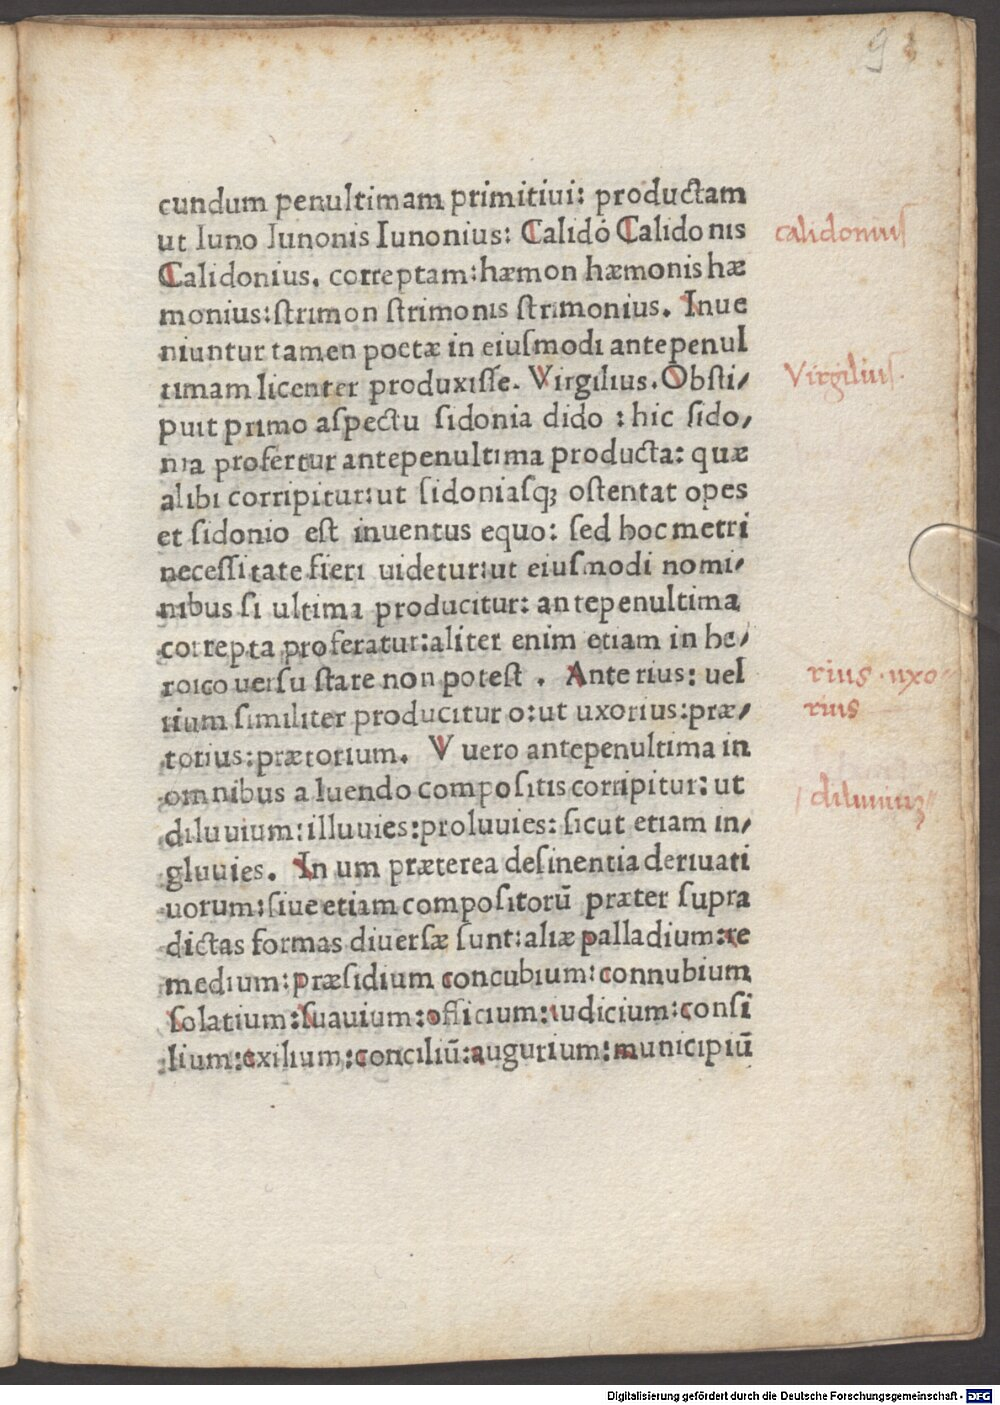 9
cundum penultimam primitiui: productam
ut Iuno Iunonis Iunonius: Calidó Calidonis
Calidonius. correptam: hæmon hæmonis hæ
monius: ſtrimon ſtrimonis ſtrimonius. Inue
niuntur tamen poetæ in eiuſmodi antepenul
timam licenter produxiſſe. Virgilius. Obſti/
puit primo aſpectu ſidonia dido : hic ſido/
nia profertur antepenultima producta: quæ
alibi corripitur: ut ſidoniaſqꝫ oſtentat opes
et ſidonio eſt inuentus equo: ſed hoc metri
neceſſitate fieri uidetur: ut eiuſmodi nomi/
nibus ſi ultima producitur: antepenultima
correpta proferatur: aliter enim etiam in he/
roico uerſu ſtare non poteſt . Ante rius: uel
rium ſimiliter producitur o: ut uxorius: præ/
torius: prætorium. V uero antepenultima in
omnibus a luendo compoſitis corripitur: ut
diluuium: illuuies: proluuies: ſicut etiam in/
gluuies. In um præterea deſinentia deriuati
uorum: ſiue etiam compoſitorū præter ſupra
dictas formas diuerſæ ſunt: aliæ palladium: re
medium: præſidium concubium: connubium
ſolatium: ſuauium: officium: iudicium: conſi
lium: exilium: conciliū: augurium: municipiū
calidoniuſ
Virgiliuſ.
rius · uxo
rius
diluuiuꝫ
Digitalisierung gefördert durch die Deutsche Forschungsgemeinschaft - DFG